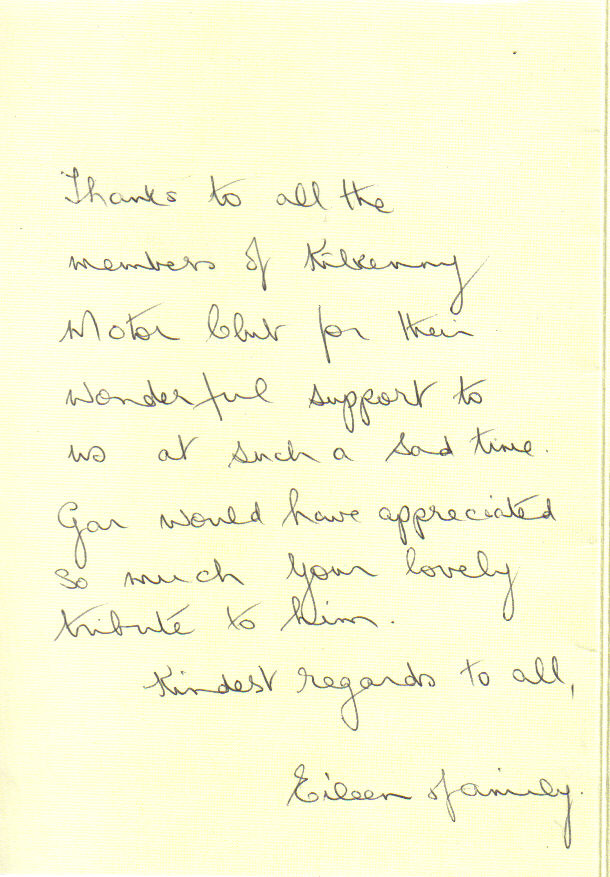 Thanks to all the
members of Kilkenny
Motor Club for their
wonderful support to
us at such a sad time.
Gar would have appreciated
so much your lovely
tribute to him.
Kindest regards to all,
Eileen & family.